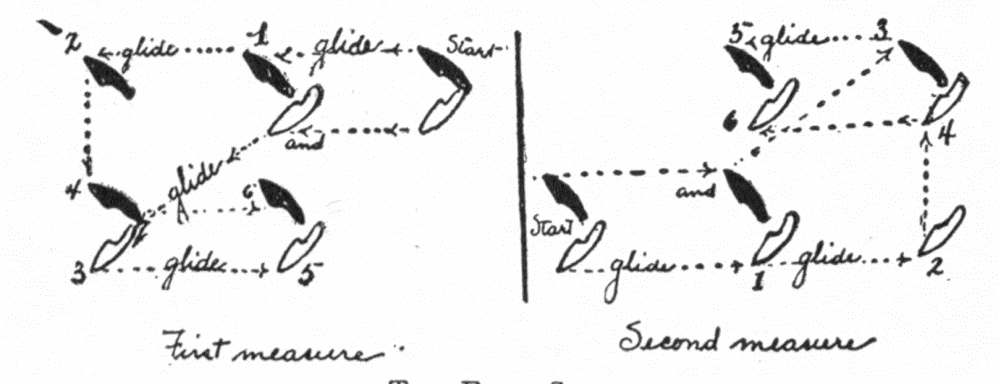 2 glide 1 glide Start
and
glide
4 6
3 glide 5
First measure
5 glide 3
6 4
and
Start
glide 1 glide 2
Second measure